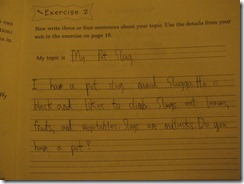 Exercise 2
Now write three or four sentences about your topic. Use the details from your
web in the exercise on page 18.
My topic is My Pet Slug
I have a pet slug named Sluggo. He is
black and likes to climb. Slugs eat leaves,
fruits, and vegetables. Slugs are mollusks. Do you
have a pet?